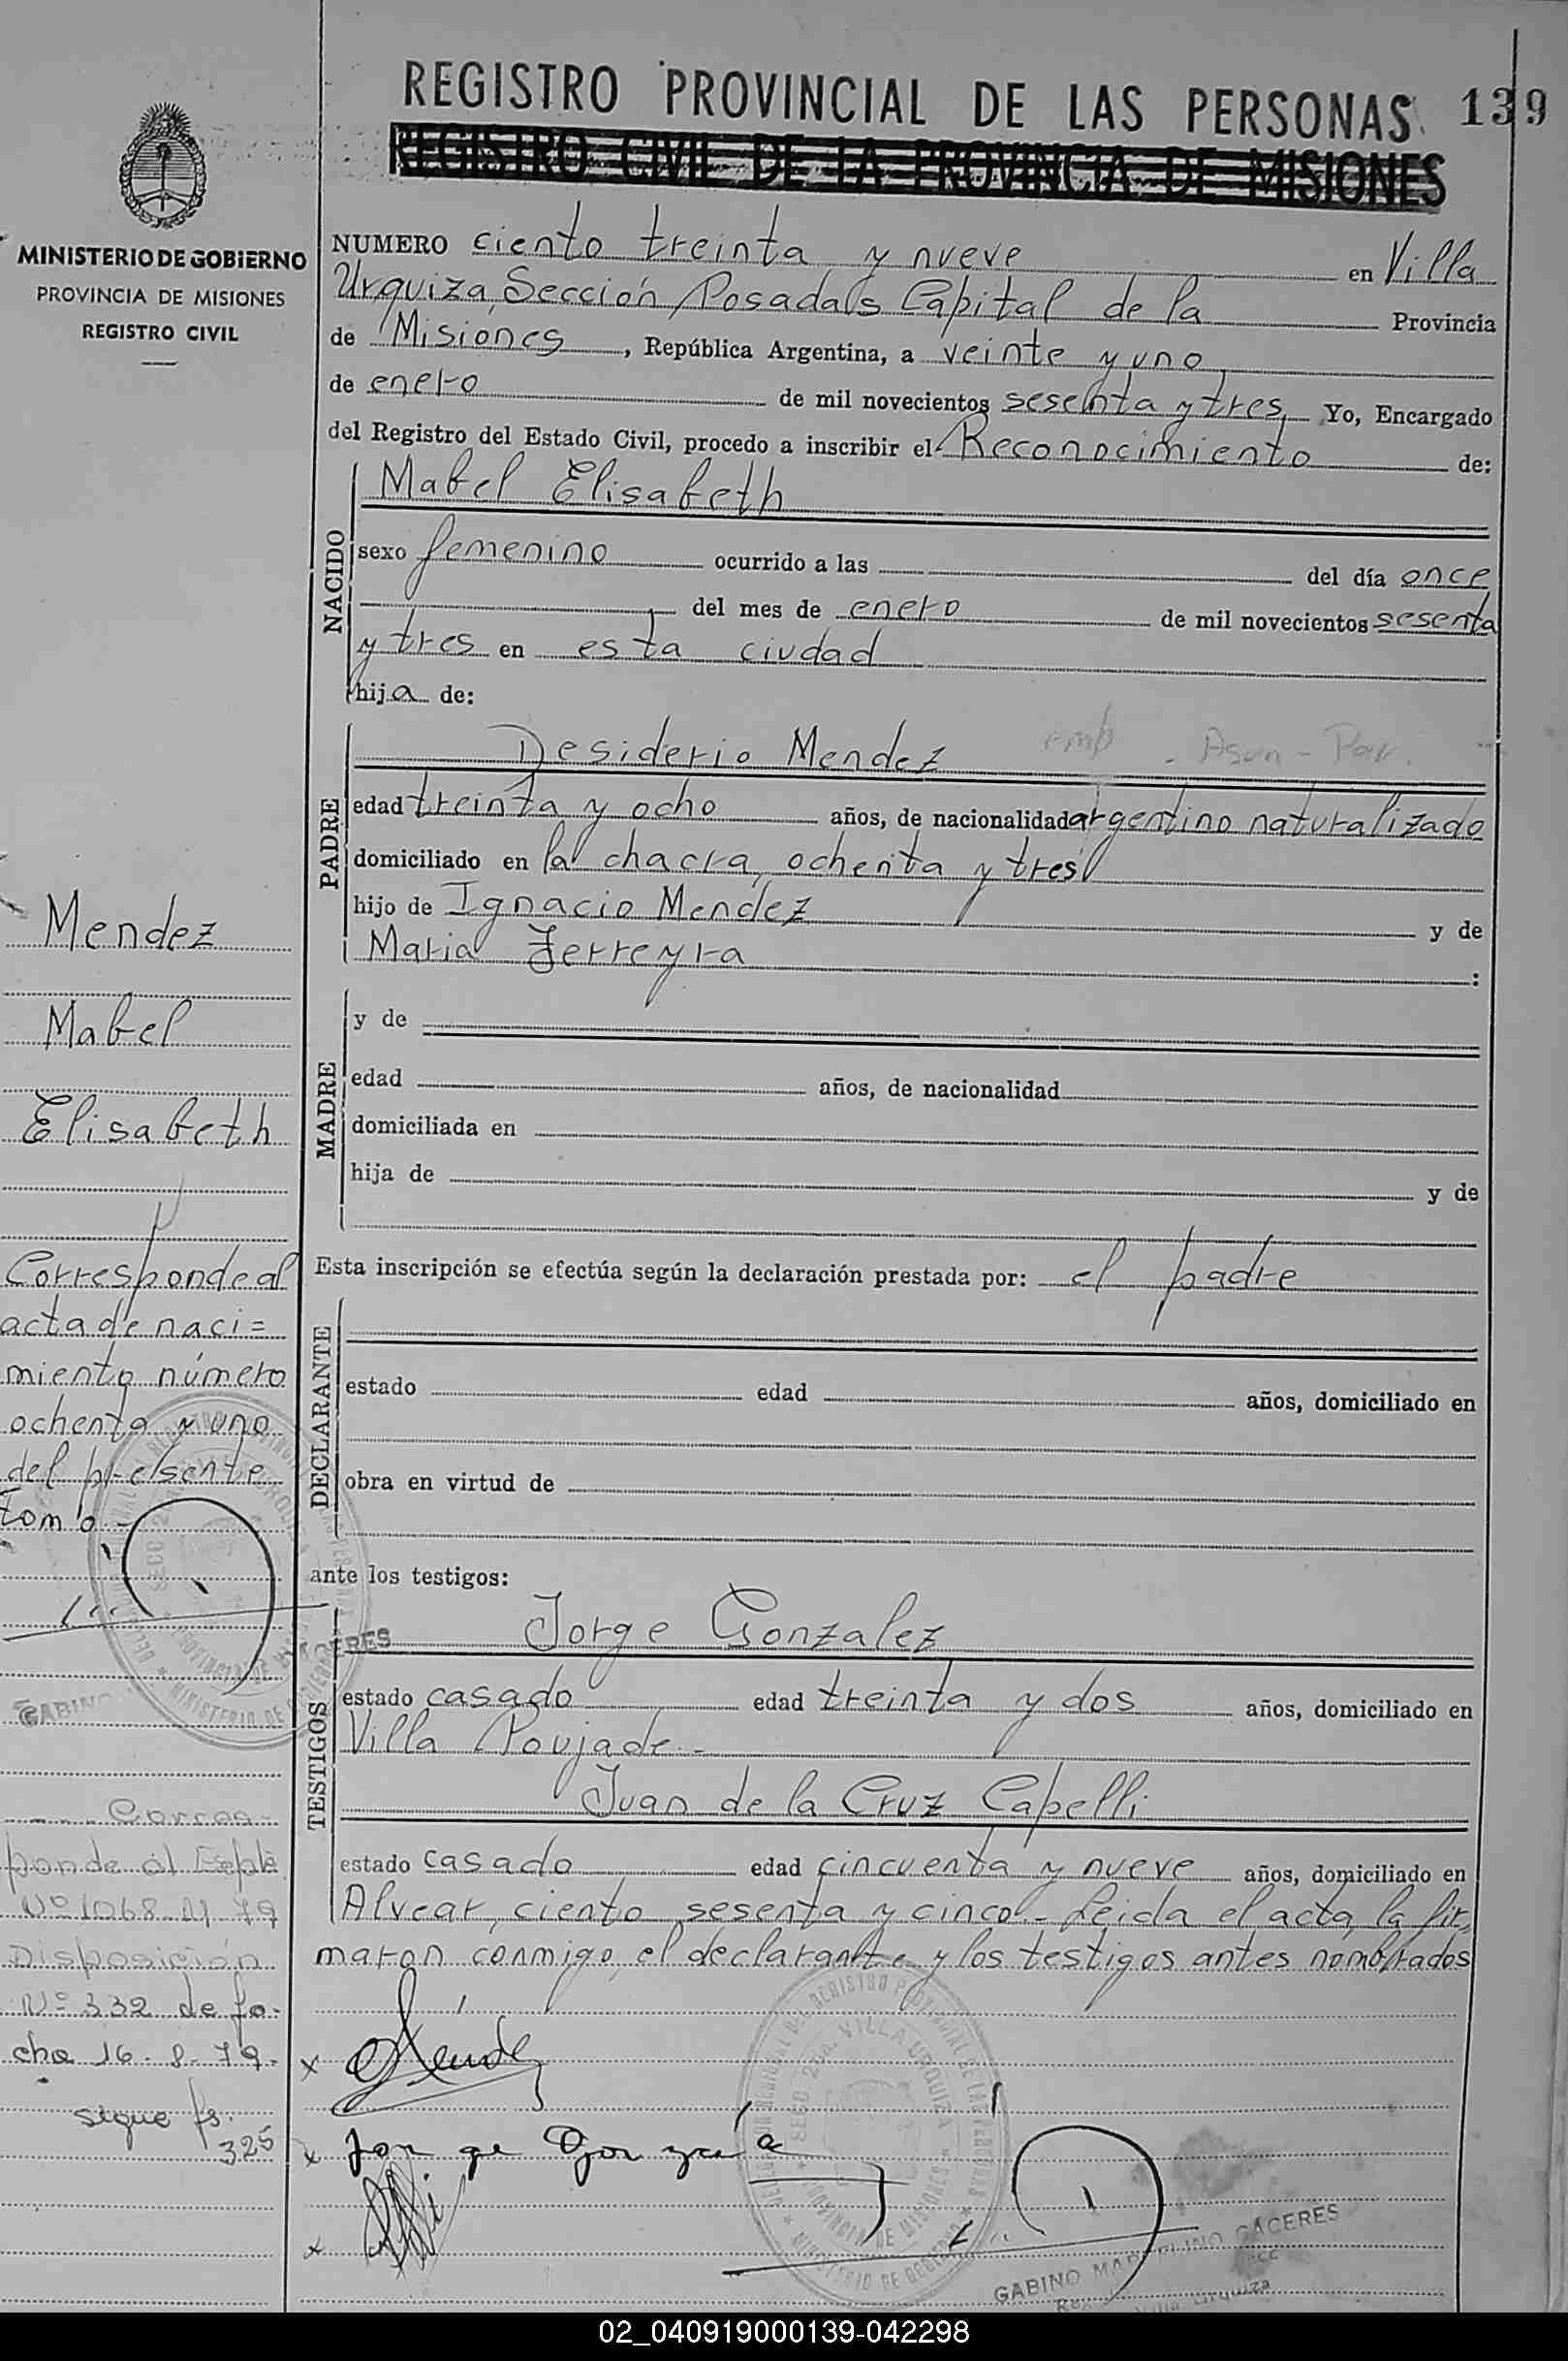 REGISTRO PROVINCIAL DE LAS PERSONAS 139
REGISTRO CIVIL DE LA PROVINCIA DE MISIONES
MINISTERIO DE GOBIERNO
PROVINCIA DE MISIONES
REGISTRO CIVIL
NUMERO ciento treinta y nueve en Villa
Urquiza, Sección Posadas Capital de la Provincia
de Misiones, República Argentina, a veinte y uno
de enero de mil novecientos sesenta y tres, Yo, Encargado
del Registro del Estado Civil, procedo a inscribir el Reconocimiento de:
NACIDO
Mabel Elisabeth
sexo femenino ocurrido a las del día once
del mes de enero de mil novecientos sesenta
y tres en esta ciudad
hija de:
PADRE
Desiderio Mendez emp. Asun - Par.
edad treinta y ocho años, de nacionalidad argentino naturalizado
domiciliado en la chacra, ochenta y tres
hijo de Ignacio Mendez y de
Maria Ferreyra :
MADRE
y de
edad años, de nacionalidad
domiciliada en
hija de y de
Esta inscripción se efectúa según la declaración prestada por: el padre
DECLARANTE
estado edad años, domiciliado en
obra en virtud de
ante los testigos:
TESTIGOS
Jorge Gonzalez
estado casado edad treinta y dos años, domiciliado en
Villa Poujade.-
Juan de la Cruz Capelli
estado casado edad cincuenta y nueve años, domiciliado en
Alvear, ciento sesenta y cinco.- Leida el acta, la fir=
maron conmigo, el declarante y los testigos antes nombrados
Mendez
Mabel
Elisabeth
Corresponde al
acta de naci=
miento número
ochenta y uno
del presente
tomo.-
CACERES
GABINO
Corres-
ponde al Expte
Nº 1068-M-79
Disposición
Nº 332 de fe-
cha 16-8-79.
sigue fs.
325
x Mendez
x Jorge Gonzalez
x
DELEGACION REGIONAL DEL REGISTRO PROVINCIAL DE LAS PERSONAS
SECC. 2da. VILLA URQUIZA
PROVINCIA DE MISIONES
MINISTERIO DE GOBIERNO
GABINO MARCELINO CACERES
Villa Urquiza
02_040919000139-042298